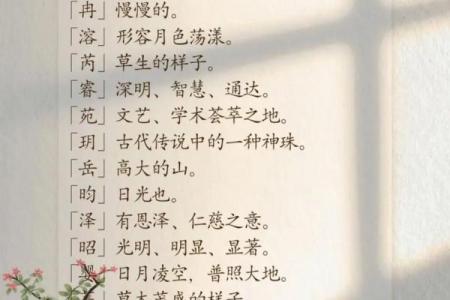 「冉」慢慢的。
「溶」形容月色荡漾。
「芮」草生的样子。
「睿」深明、智慧、通达。
「苑」文艺、学术荟萃之地。
「玥」古代传说中的一种神珠。
「岳」高大的山。
「昀」日光也。
「泽」有恩泽、仁慈之意。
「昭」光明、明显、显著。
「曌」日月凌空，普照大地。
草木茂盛的样子